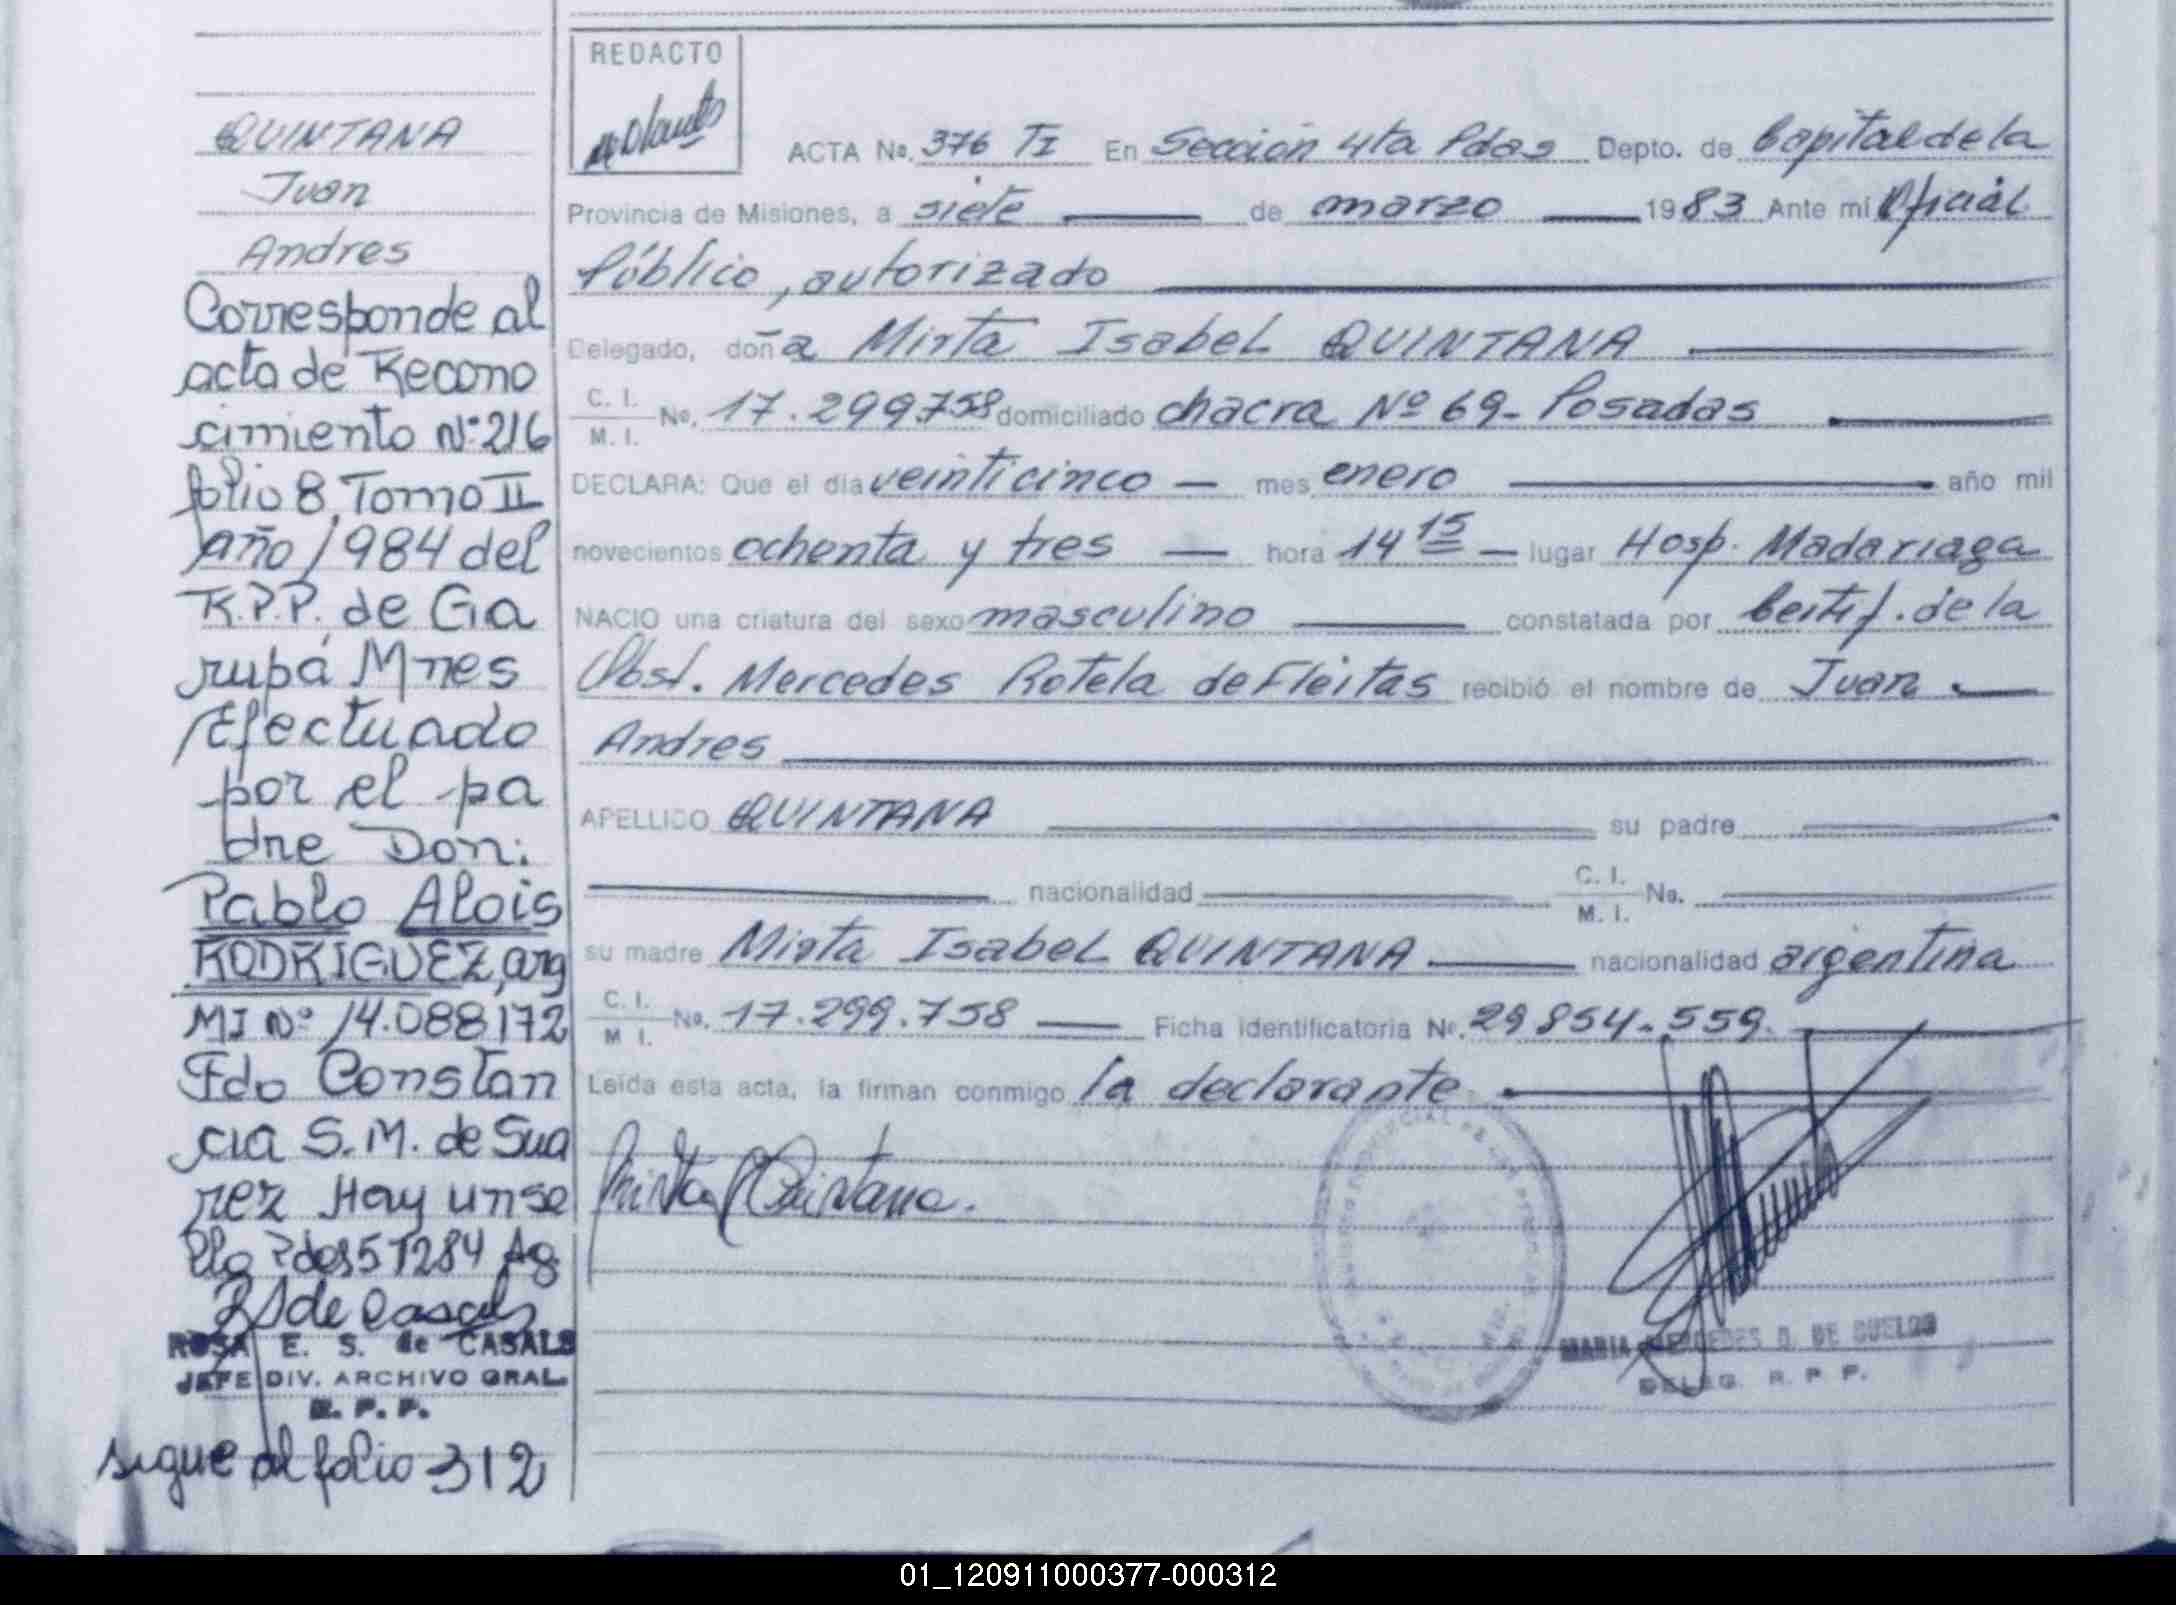 QUINTANA
Juan
Andres
Corresponde al
acta de Recono
cimiento Nº 216
folio 8 Tomo II
año 1984 del
R.P.P. de Ga
rupá Mnes
Efectuado
por el pa
dre Don:
Pablo Alois
RODRIGUEZ, arg
MI Nº 14.088,172
Fdo Constan
cia S.M. de Sua
rez Hay un se
llo
ROSA E. S. de CASALS
JEFE DIV. ARCHIVO GRAL.
R. P. P.
sigue al folio 312
REDACTO
ACTA No. 376 TI En Sección 4ta Pdas Depto. de Capital de la
Provincia de Misiones, a siete de marzo 1983 Ante mi Oficial
Público, autorizado
Delegado, doña Mirta Isabel QUINTANA
C. I. M. I. No. 17.299.758 domiciliado chacra Nº 69- Posadas
DECLARA: Que el día veinticinco mes enero año mil
novecientos ochenta y tres hora 14 15 lugar Hosp. Madariaga
NACIO una criatura del sexo masculino constatada por Certif. de la
Obst. Mercedes Rotela de Fleitas recibió el nombre de Juan
Andres
APELLIDO QUINTANA su padre
nacionalidad C. I. M. I. No.
su madre Mirta Isabel QUINTANA nacionalidad argentina
C. I. M I. No. 17.299.758 Ficha identificatoria No. 29.854.559.
Leída esta acta, la firman conmigo la declarante
Mirta I Quintana.
MARIA MERCEDES D. DE
DELEG. R. P. P.
01_120911000377-000312